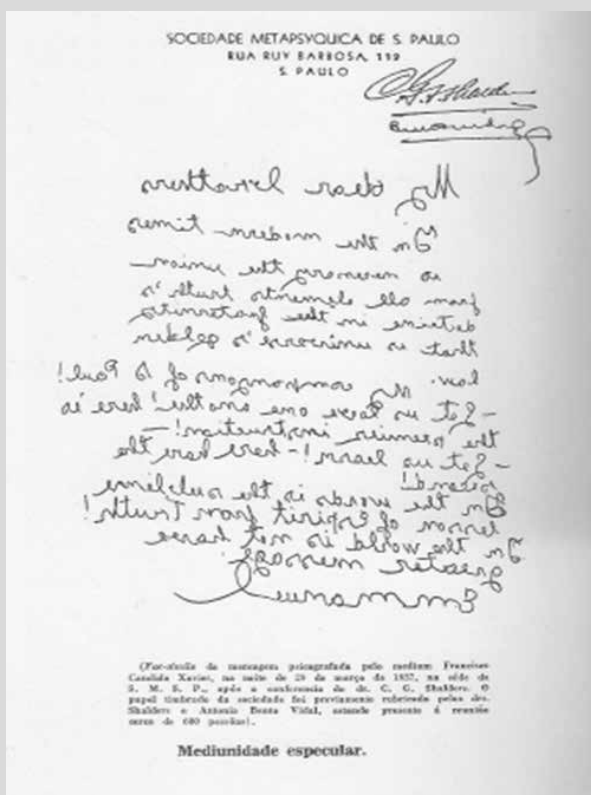 SOCIEDADE METAPSYQUICA DE S. PAULO
RUA RUY BARBOSA, 119
S. PAULO
My dear
In the modern times
the union
from all elements truth's
in the
that is universe's golden
law. My of S. Paul!
- Let us one another! here is
the genuine
- Let us learn! - the
In the words is the sublime
lesson of spirit from truth!
In the world is not
greater message.
Emmanuel
(Fac-simile da mensagem psicografada pelo medium Francisco
Candido Xavier, na noite de 29 de março de 1937, na séde da
S. M. S. P., após a conferencia do dr. C. G. Shalders. O
papel timbrado da sociedade foi previamente rubricado pelos drs.
Shalders e Antonio Bento Vidal, estando presente á reunião
cerca de 600 pessôas).
Mediunidade especular.